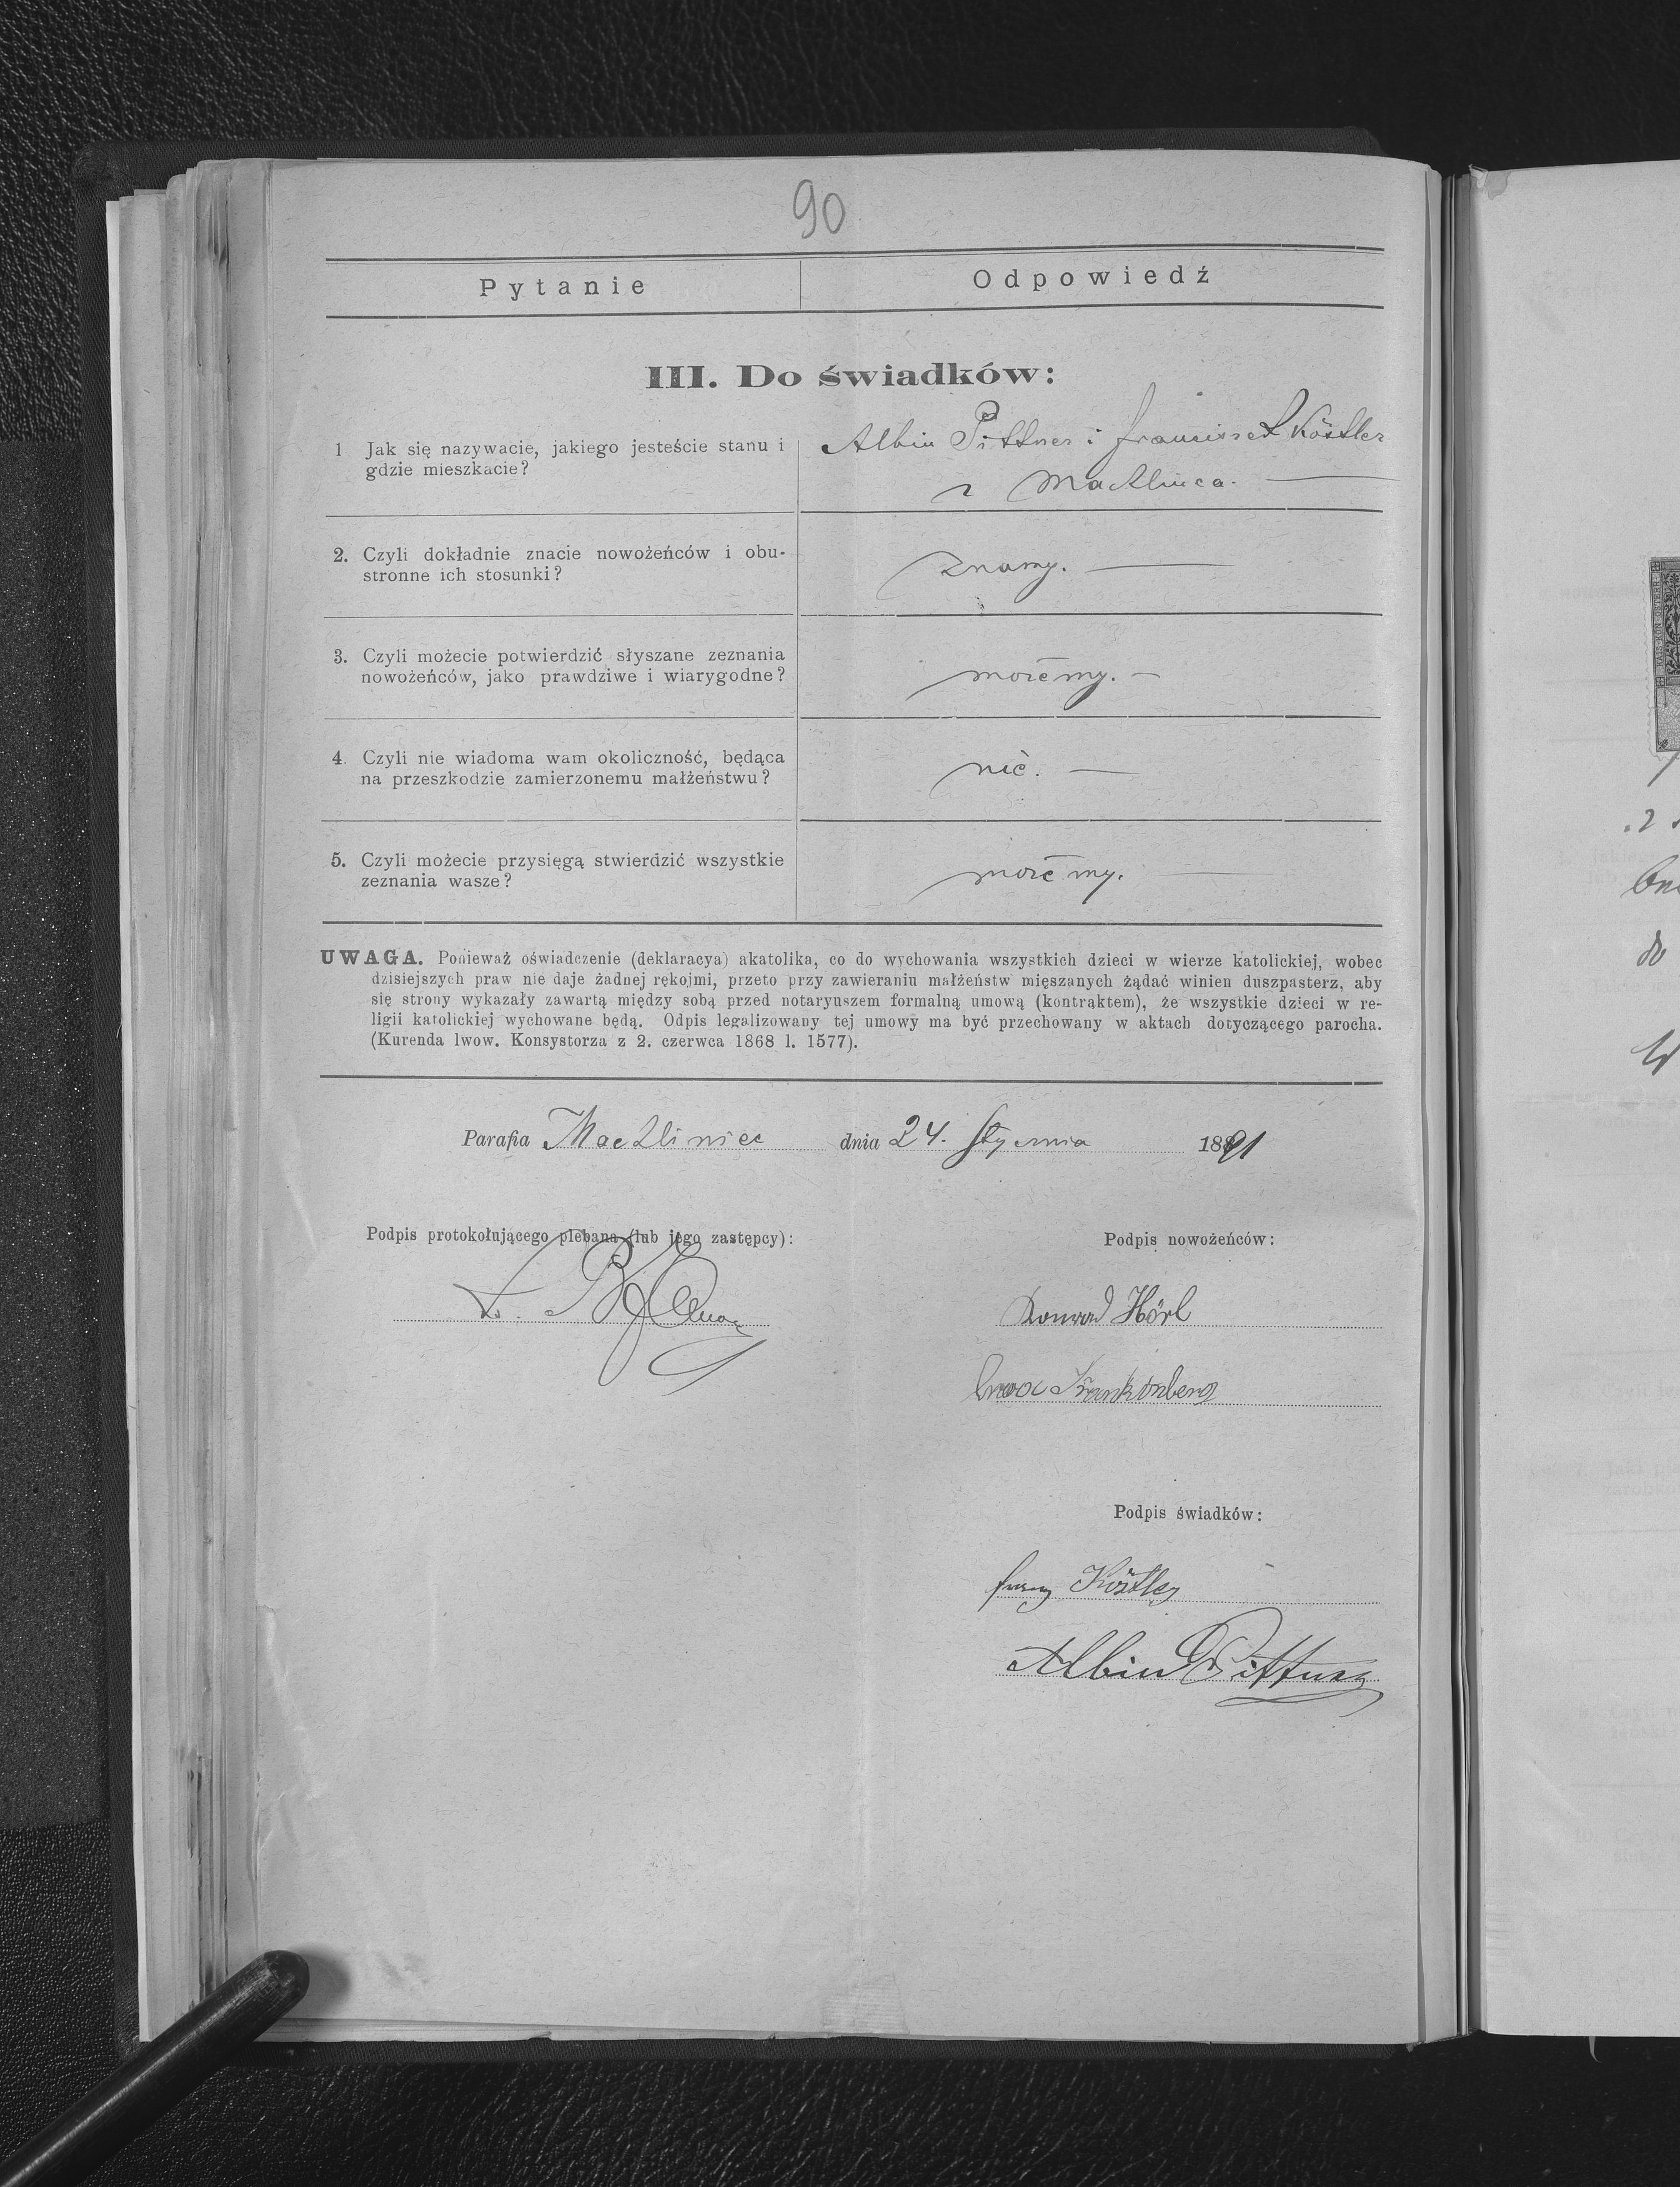 90
Pytanie
Odpowiedź
III. Do świadków:
1 Jak się nazywacie, jakiego jesteście stanu i
gdzie mieszkacie?
Albin Pittner i Franciszek Köstler
z Machlinca.
2. Czyli dokładnie znacie nowożeńców i obu-
stronne ich stosunki?
znamy.
3. Czyli możecie potwierdzić słyszane zeznania
nowożeńców, jako prawdziwe i wiarygodne?
możemy.
4. Czyli nie wiadoma wam okoliczność, będąca
na przeszkodzie zamierzonemu małżeństwu?
nic.
5. Czyli możecie przysięgą stwierdzić wszystkie
zeznania wasze?
możemy.
UWAGA. Ponieważ oświadczenie (deklaracya) akatolika, co do wychowania wszystkich dzieci w wierze katolickiej, wobec
dzisiejszych praw nie daje żadnej rękojmi, przeto przy zawieraniu małżeństw mięszanych żądać winien duszpasterz, aby
się strony wykazały zawartą między sobą przed notaryuszem formalną umową (kontraktem), że wszystkie dzieci w re-
ligii katolickiej wychowane będą. Odpis legalizowany tej umowy ma być przechowany w aktach dotyczącego parocha.
(Kurenda lwow. Konsystorza z 2. czerwca 1868 l. 1577).
Parafia Machliniec dnia 24. Stycznia 1891
Podpis protokołującego plebana (lub jego zastępcy):
Podpis nowożeńców:
Konrad Hörl
Frankenberg
Podpis świadków:
Franz Köstler
Albin Pittner